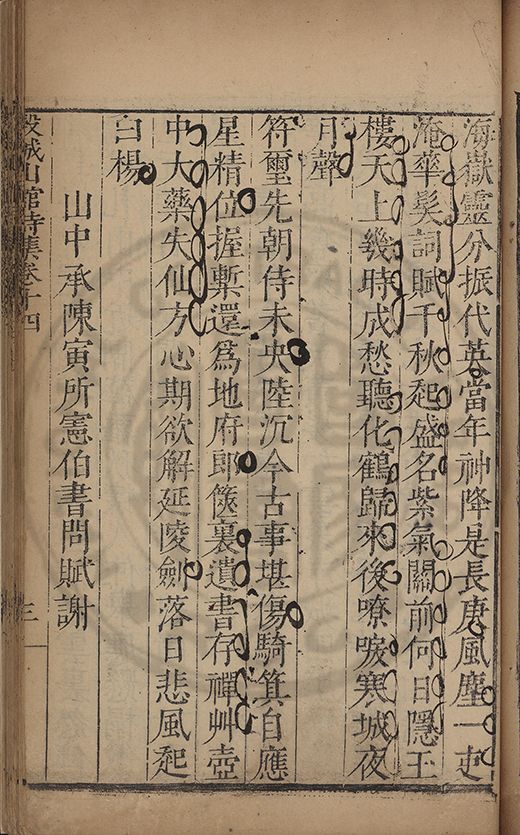 海嶽靈分振代英當年神降是長庚風塵一吏
淹華髮詞賦千秋起盛名紫氣關前何日隱玉
樓天上幾時成愁聽化鶴歸來後嘹唳寒城夜
月聲
符璽先朝侍未央陸沉今古事堪傷騎箕自應
星精位握槧還爲地府郎篋裏遺書存禪艸壺
中大藥失仙方心期欲解延陵劍落日悲風起
白楊
山中承陳寅所憲伯書問賦謝
穀城山館詩集卷十四
三